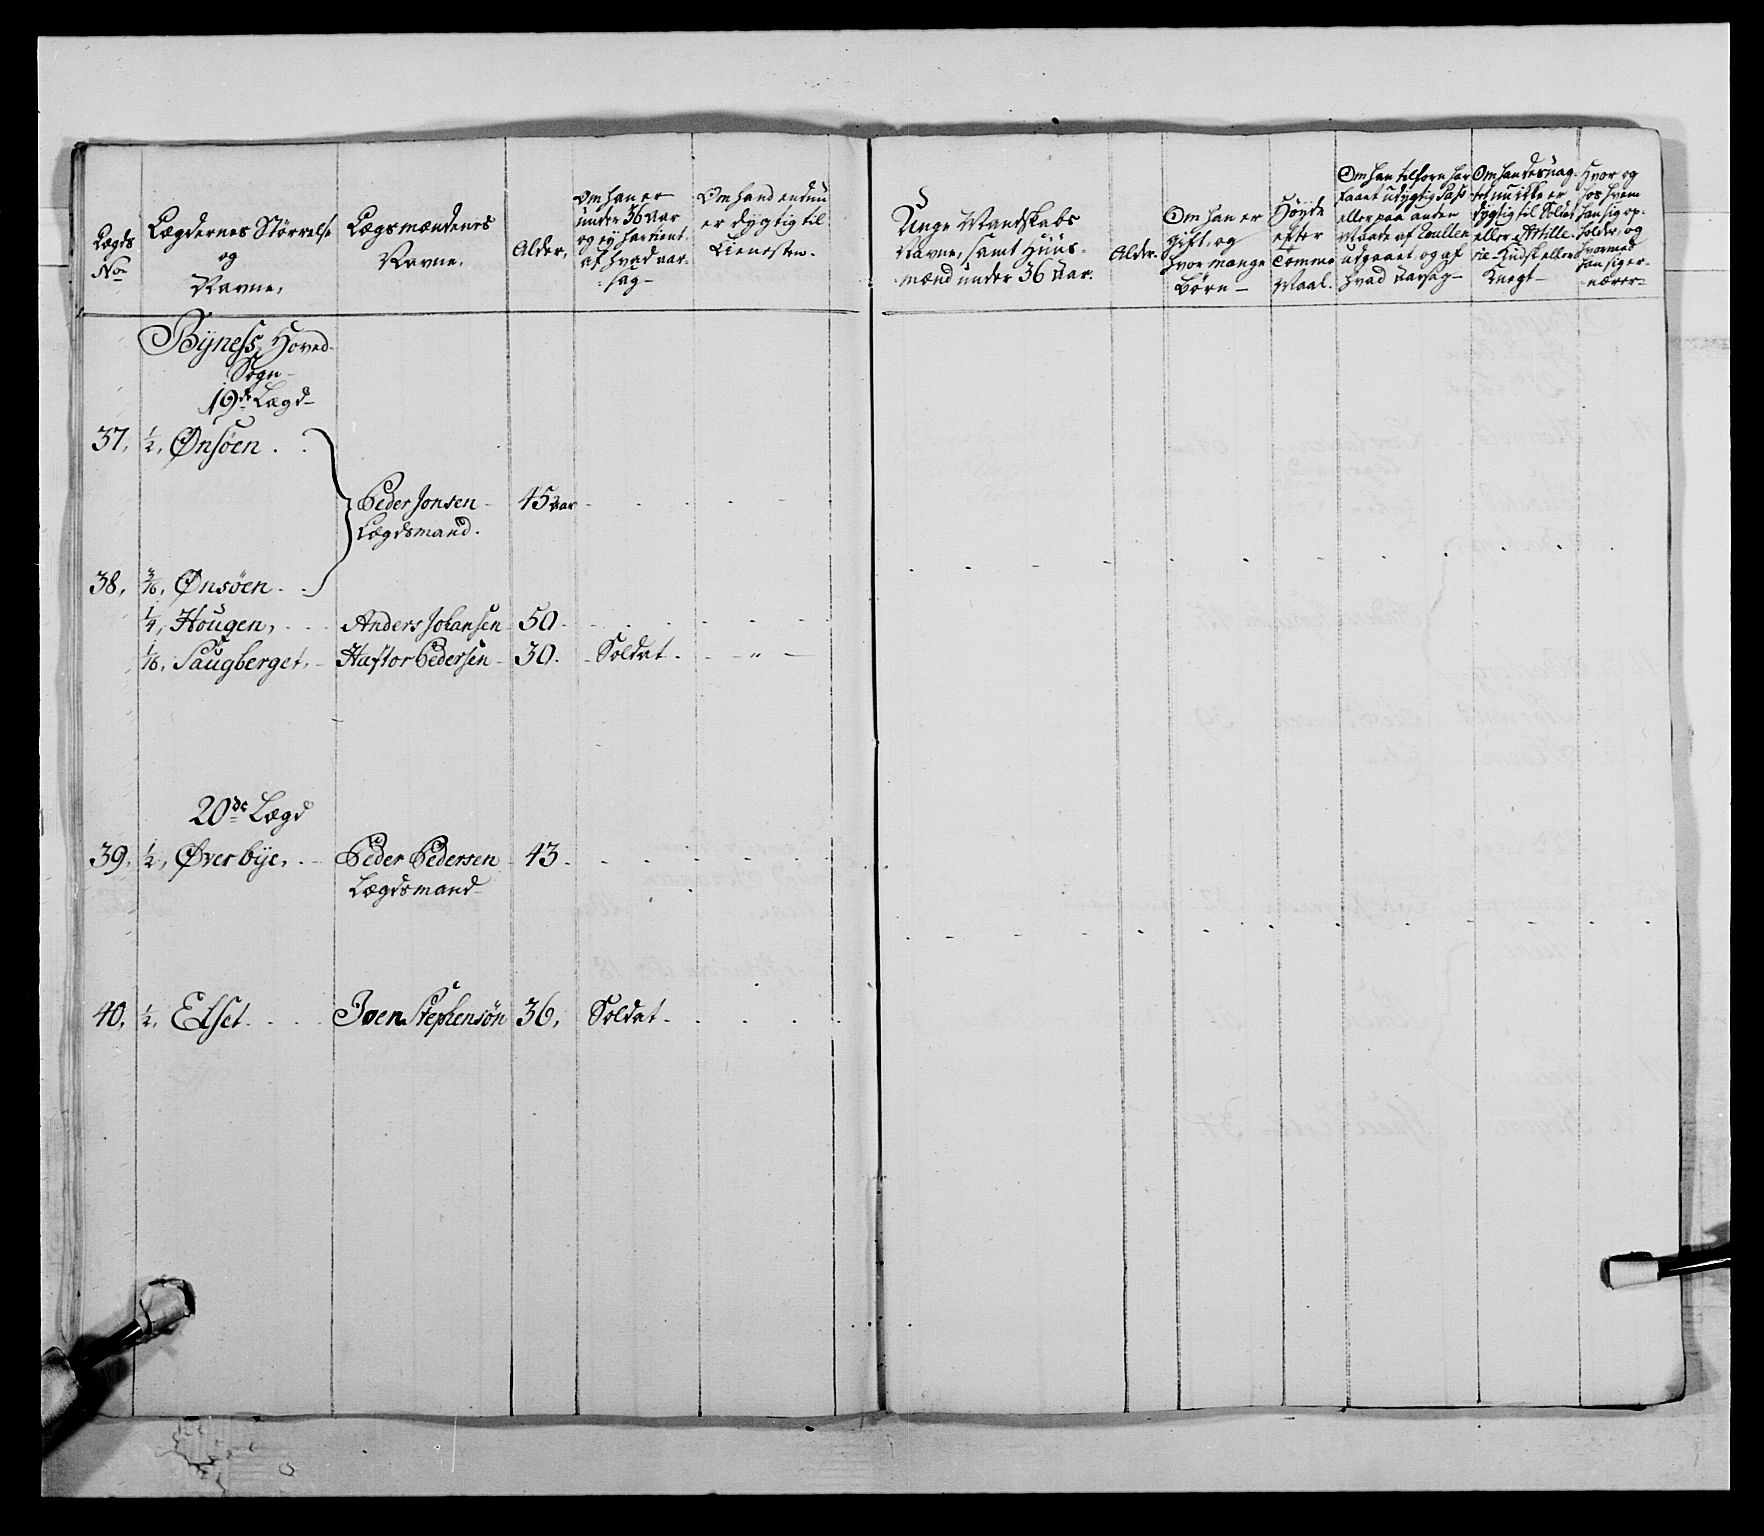 Lægds
No
Lægdernes Størrelse
og
Navne,
Lægsmændenes
Navne,
Alder,
Om han er
under 36 Aar
og ej har tient
af hvad aar-
sag-
Om hand endnu
er dygtig til
Tienesten.
Unge Mandskabs
Navne, samt Huus-
mænd under 36 Aar.
Alder.
Om han er
gift, og
hvor mange
Børn-
Høyde
efter
Tomme
Maal.
Om han tilforn har
faaet udygtig Pass
eller paa anden
Maade af Rullen
udgaaet, og af
hvad aarsag-
Om han desuag-
tet nu ikke er
dygtig til Soldat
eller Artille-
rie-Kudsk eller
Knegt-
Hvor og
hos hvem
han sig op-
holder, og
hvormed
han sig er-
nærer-
Byness Hoved-
Sogn-
19de Lægd-
37, 1/2, Ønsöen . .
Peder Jonsen - 45 Aar
Lægdsmand.
38, 3/16, Ønsöen . .
1/4, Hougen, Anders Johansen 50.
1/16, Saugberget, Haftor Pedersen 30. Soldat. - " -
20de Lægd
39, 1/2, Øverbÿe, Peder Pedersen 43.
Lægdsmand
40, 1/2, Elset . . . Iven Stephensøn 36, Soldat.